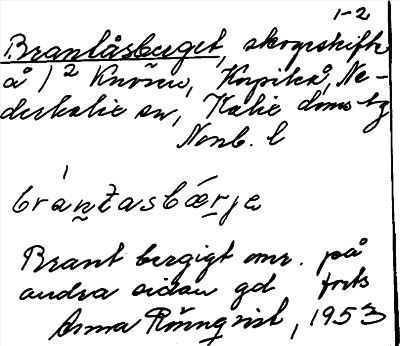 1-2
Brantåsberget, skogsskifte
å 1² Knösen, Korpikå, Ne-
derkalix sn, Kalix doms-tg
Nonb. l
bráṉtasbǽrje
Brant bergigt omr. på
andra sidan gd forts
Anna Rönnqvist, 1953